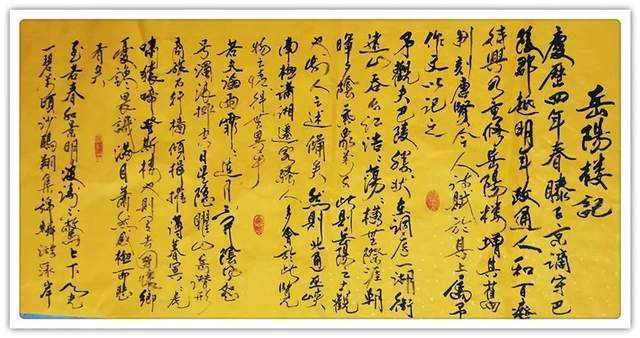 岳陽楼記
慶歷四年春滕子京謫守巴
陵郡越明年政通人和百廢
待興乃重修岳陽楼增其舊
制刻唐賢今人詩賦於其上屬予
作文以記之
予觀夫巴陵勝狀在洞庭一湖銜
遠山吞長江浩浩蕩蕩橫無際涯朝
暉夕陰氣象万千此則岳陽楼之大觀
也前人之述備矣然則北通巫峽
南極瀟湘遷客騷人多會於此覽
物之情得無異乎
若夫淫雨霏霏連月不開陰風怒
号濁浪排空日星隱曜山岳潛形
商旅不行檣傾楫摧薄暮冥冥虎
嘯猿啼登斯楼也則有去國懷鄉
憂讒畏譏滿目蕭然感極而悲
者矣
至若春和景明波瀾不驚上下天光
一碧萬頃沙鷗翔集錦鱗游泳岸